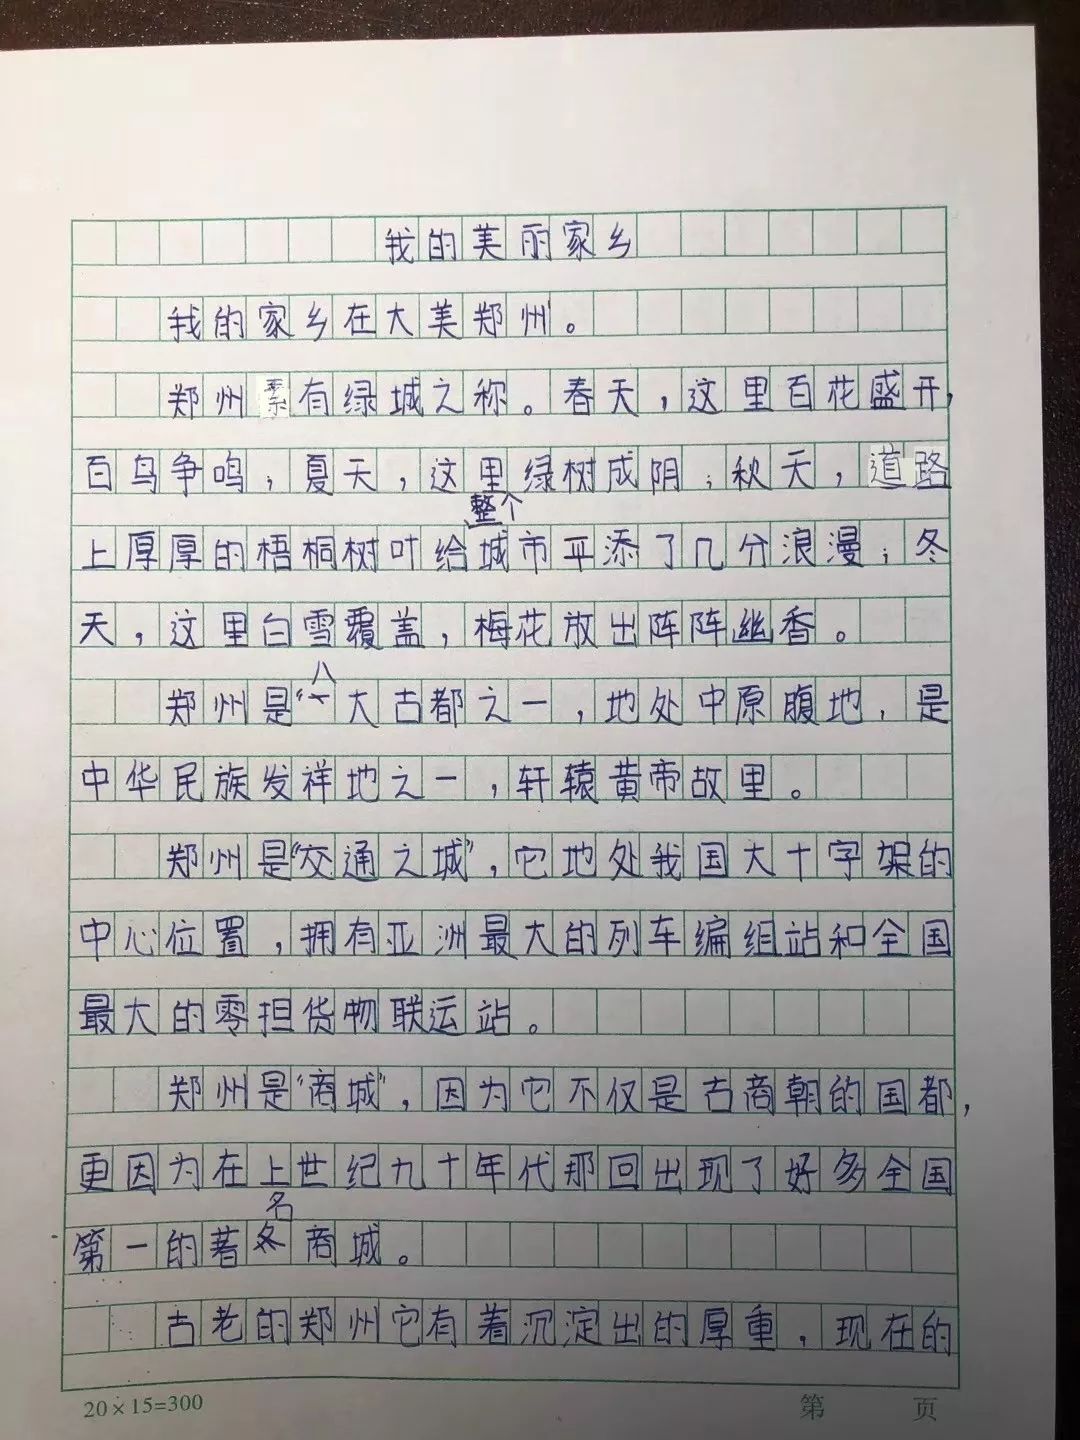 我的美丽家乡
我的家乡在大美郑州。
郑州素有绿城之称。春天，这里百花盛开，
百鸟争鸣；夏天，这里绿树成阴；秋天，道路
整个
上厚厚的梧桐树叶给城市平添了几分浪漫；冬
天，这里白雪覆盖，梅花放出阵阵幽香。
八
郑州是“大古都之一，地处中原腹地，是
中华民族发祥地之一，轩辕黄帝故里。
郑州是“交通之城”，它地处我国大十字架的
中心位置，拥有亚洲最大的列车编组站和全国
最大的零担货物联运站。
郑州是“商城”，因为它不仅是古商朝的国都，
更因为在上世纪九十年代那回出现了好多全国
名
第一的著商城。
古老的郑州它有着沉淀出的厚重，现在的
20×15=300
第 页